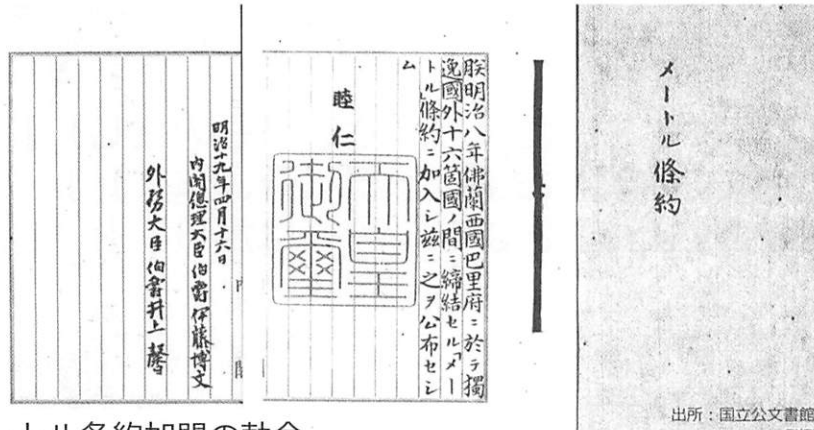 メートル條約
朕明治八年佛蘭西國巴里府ニ於テ獨
逸國外十六箇國ノ間ニ締結セル「メー
トル」條約ニ加入シ茲ニ之ヲ公布セシ
ム
睦仁
天皇
御璽
明治十九年四月十六日
内閣總理大臣伯爵伊藤博文
外務大臣伯爵井上馨
出所：国立公文書館